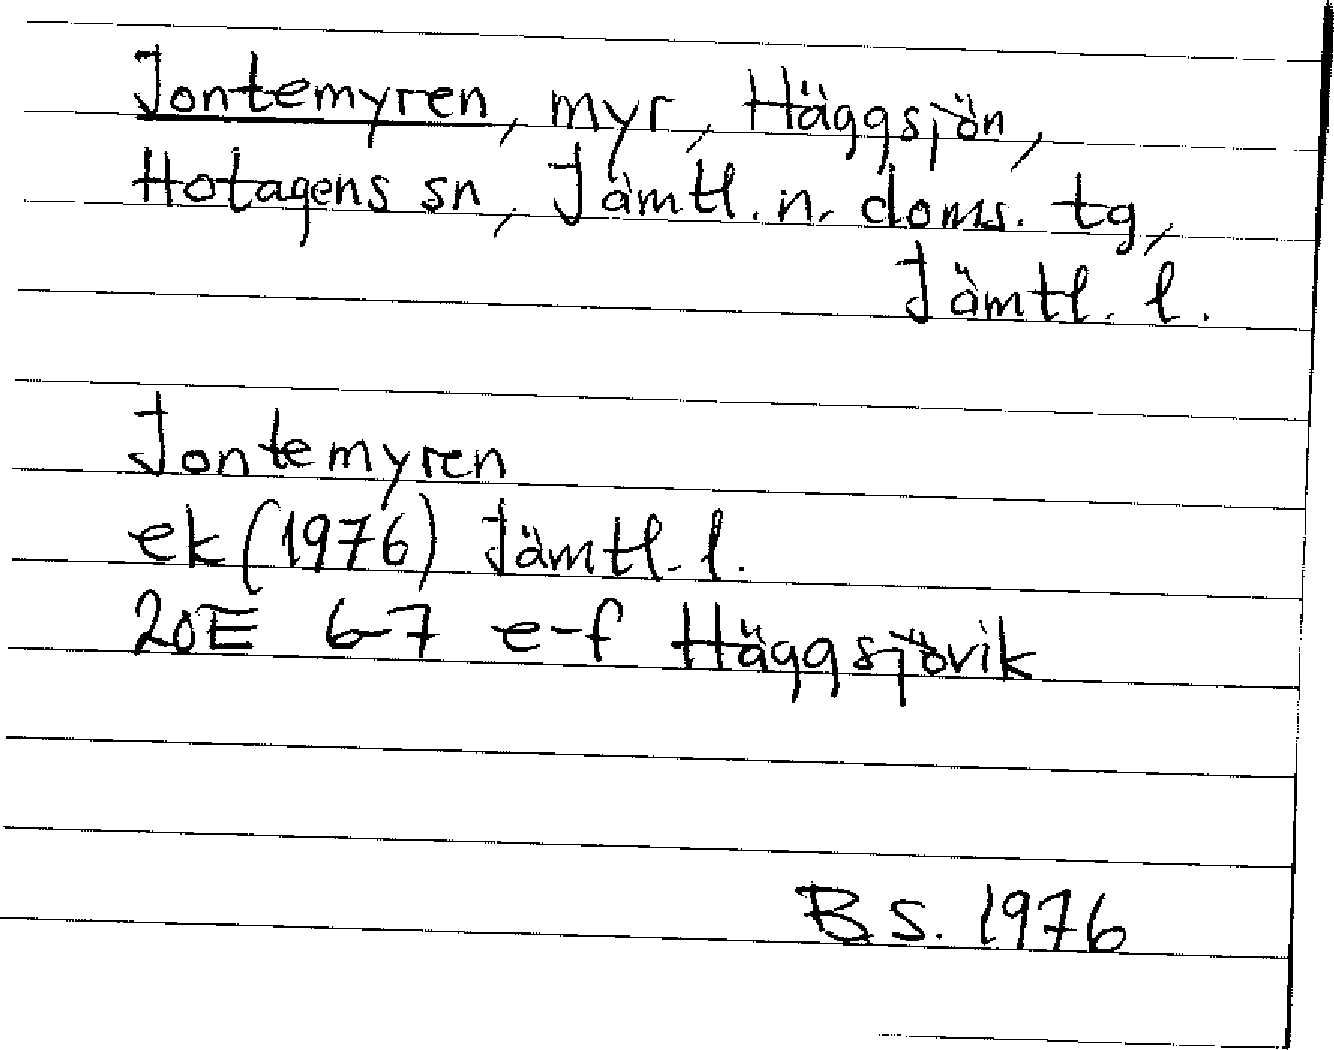 Jontemyren, myr, Häggsjön,
Hotagens sn, Jämtl. n. doms. tg,
Jämtl. l.
Jontemyren
ek (1976) Jämtl. l.
20E 6-7 e-f Häggsjövik
B S. 1976